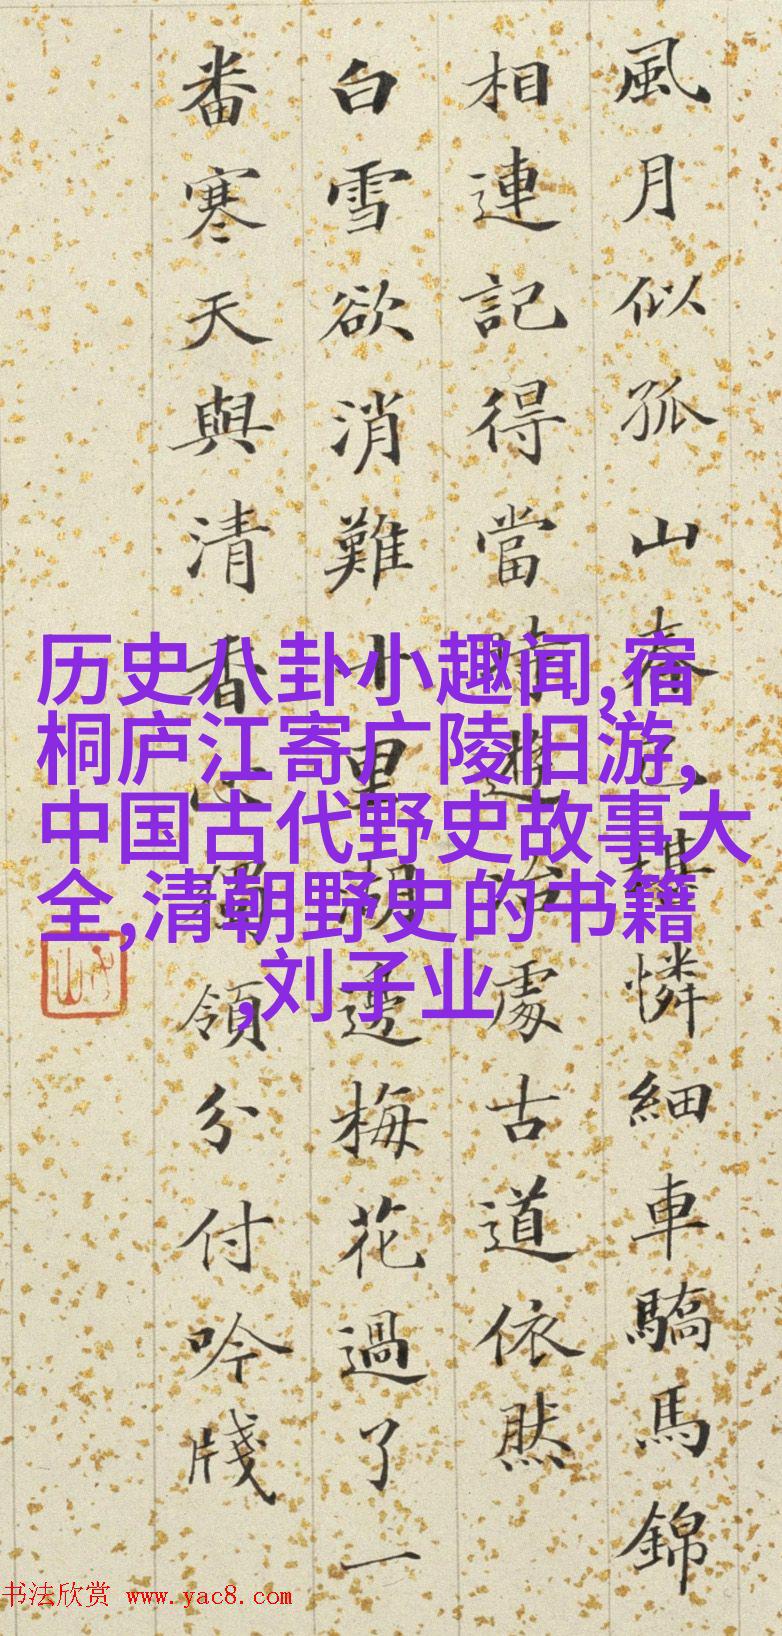 風月似孤山春已堪憐細車驕馬錦
相連記得當時遊冶處古道依然
白雪欲消難十里湖邊梅花過了一
番寒天與清香心獨領分付吟牋
历史八卦小趣闻,宿
桐庐江寄广陵旧游,
中国古代野史故事大
全,清朝野史的书籍
,刘子业
书法欣赏 www.yac8.com